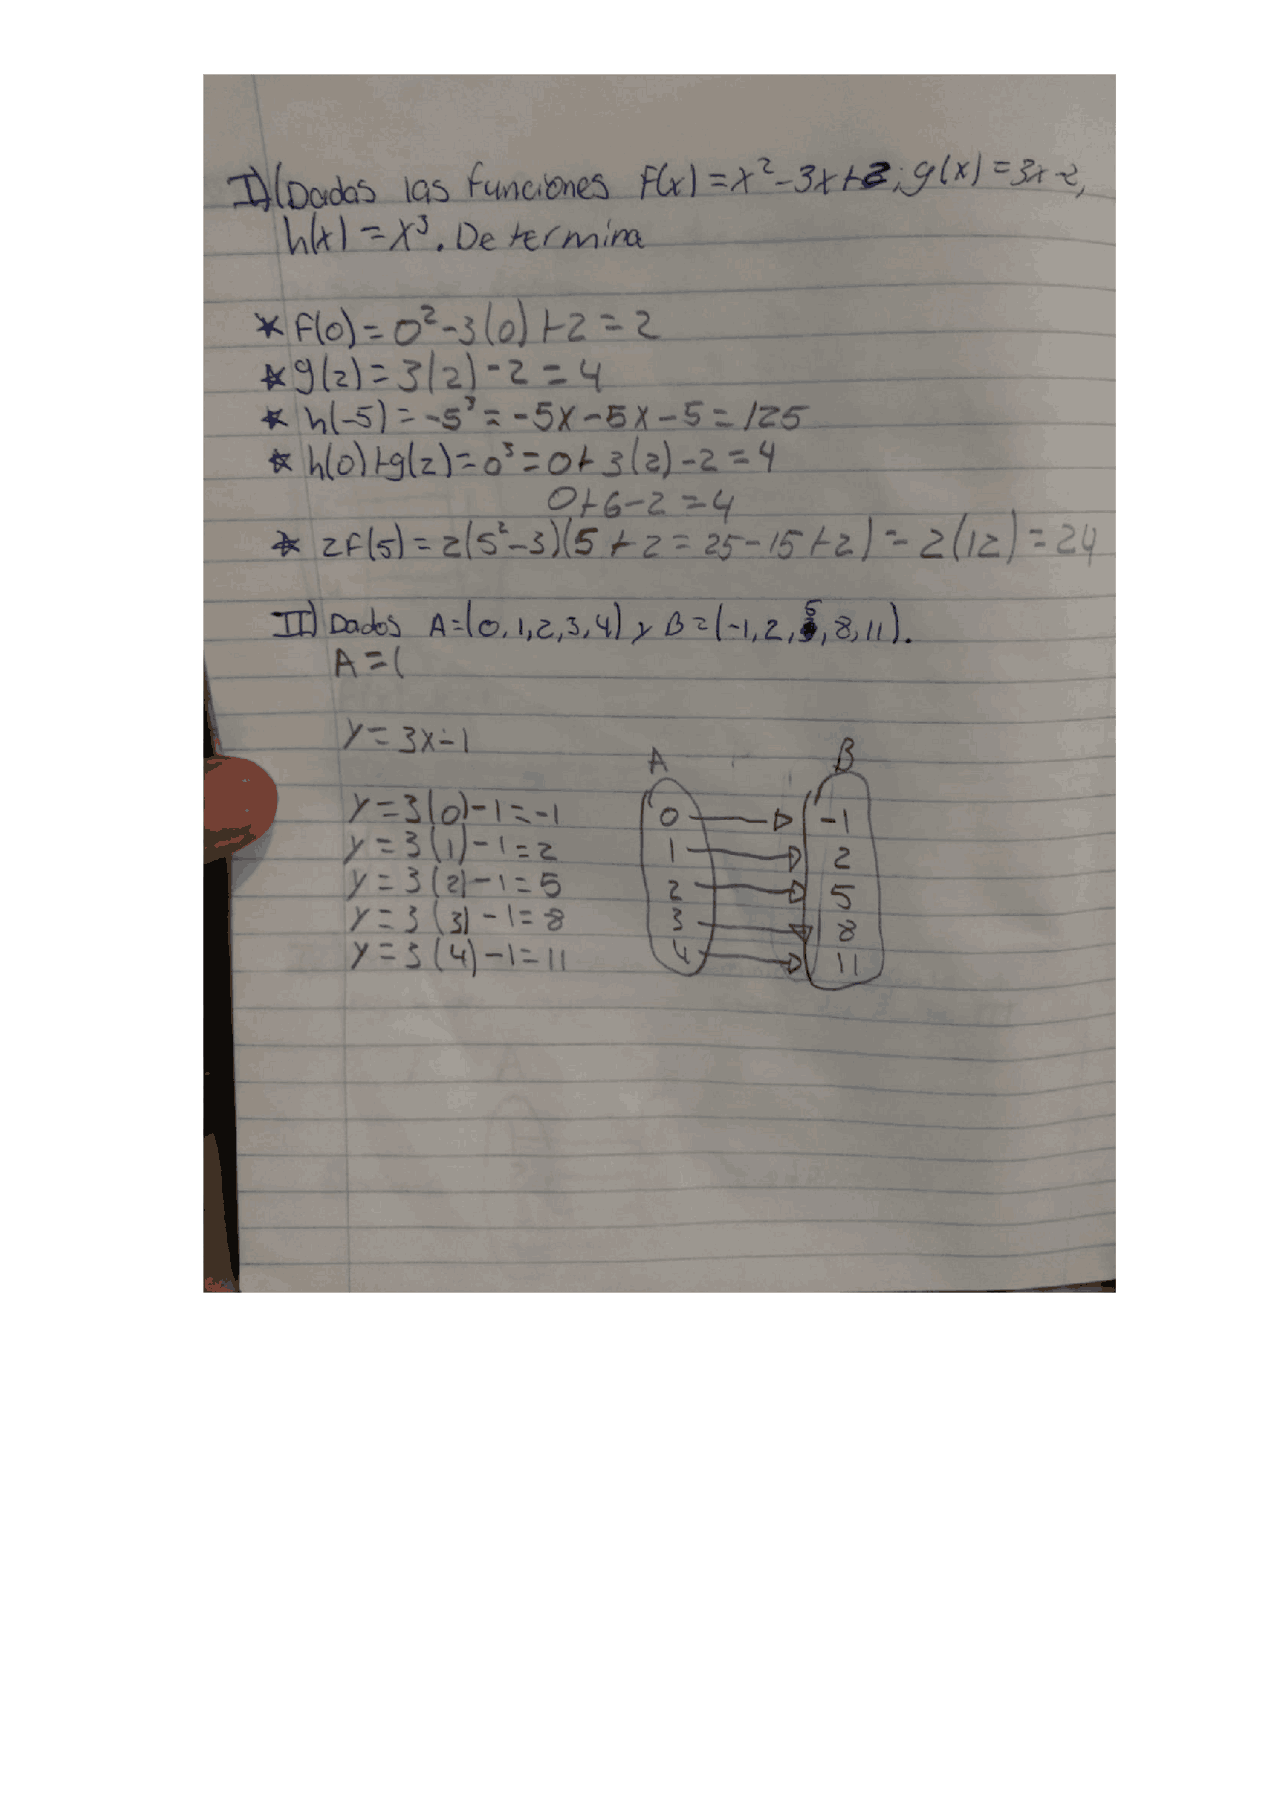 I) (Dadas las funciones F(x) = x² - 3x + 2; g(x) = 3x - 2,
h(x) = x³. Determina
* F(0) = 0² - 3(0) + 2 = 2
* g(2) = 3(2) - 2 = 4
* h(-5) = -5³ = -5x - 5x - 5 = 125
* h(0) + g(2) = 0³ = 0 + 3(2) - 2 = 4
0 + 6 - 2 = 4
* 2F(5) = 2(5² - 3)(5 + 2 = 25 - 15 + 2) = 2(12) = 24
II) Dados A = (0, 1, 2, 3, 4) y B = (-1, 2, 5, 8, 11).
A = (
y = 3x - 1
A B
y = 3(0) - 1 = -1 0 -1
y = 3(1) - 1 = 2 1 2
y = 3(2) - 1 = 5 2 5
y = 3(3) - 1 = 8 3 8
y = 3(4) - 1 = 11 4 11